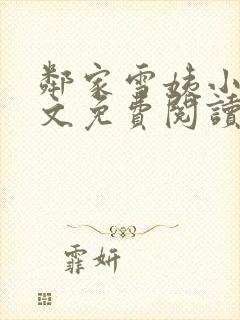 鄰家雪姨小
文免費閱讀
霏妍